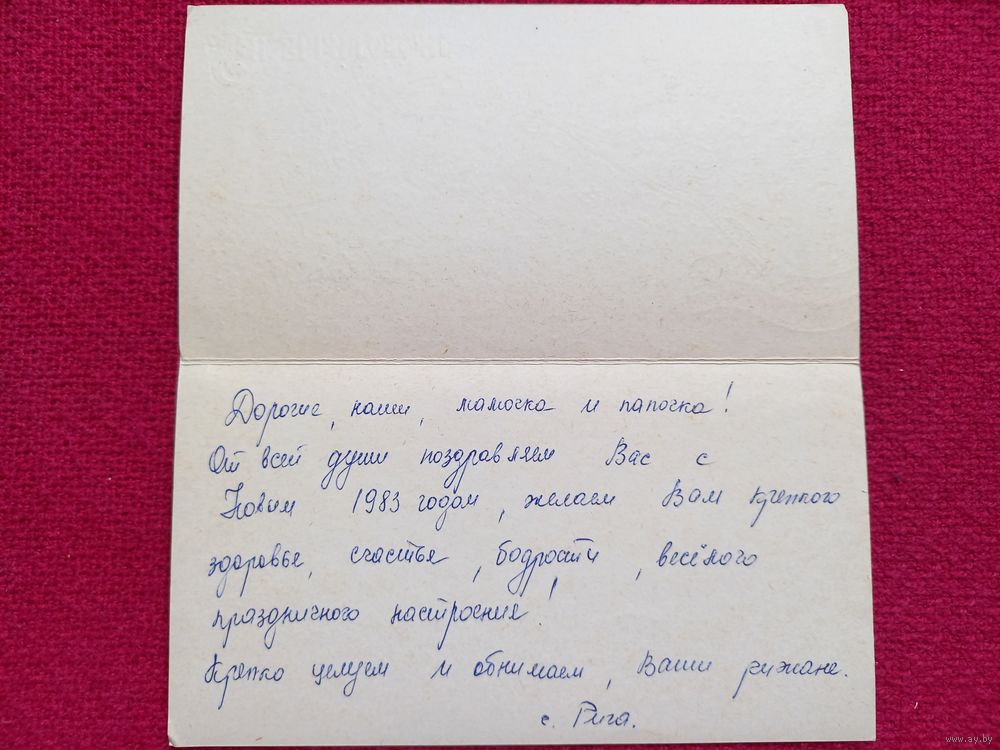 Дорогие, наши, мамочка и папочка!
От всей души поздравляем Вас с
Новым 1983 годом, желаем Вам крепкого
здоровье, счастье, бодрости, весёлого
праздничного настроение!
Крепко целуем и обнимаем, Ваши рижане.
г. Рига.
www.ay.by